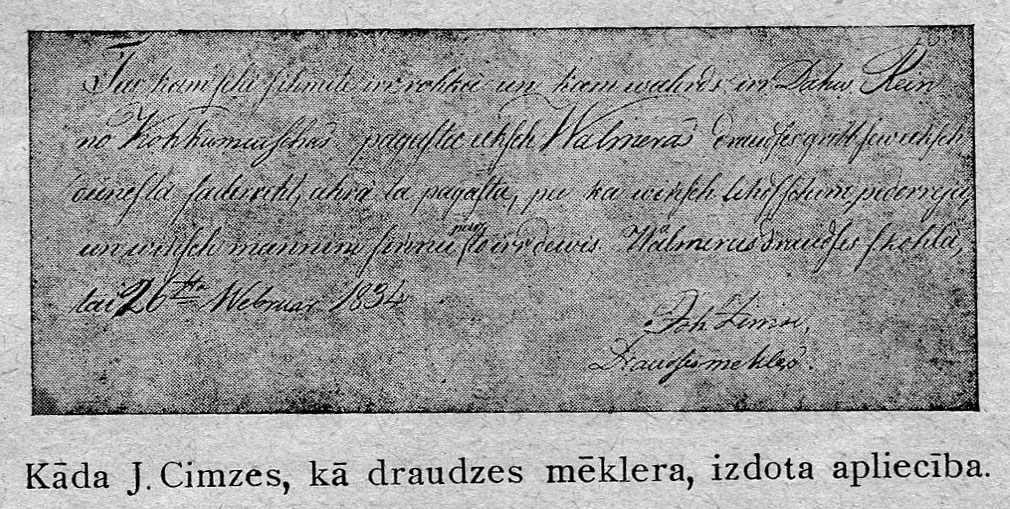 Tas kam schi sihmite irr rohkâ un kam wahrds irr Dahw. Rein
no Kohkumuischas pagasta eeksch Walmeras draudses gribb sew eeksch
deenesta saderreht, ahrâ ta pagasta, pee ka winsch lihds schim peederreja,
un winsch mannim sinnu nau dewis. Walmeras draudses skohlâ,
tai 26ta Webruar 1834
Joh Zimse,
Draudses mekleris.
Kāda J. Cimzes, kā draudzes mēklera, izdota apliecība.